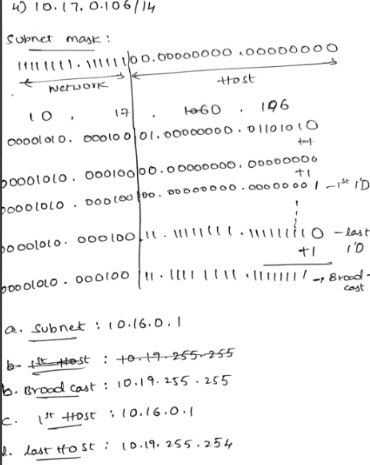 4) 10.17.0.106/14
Subnet mask:
11111111.111111|00.00000000.00000000
Network Host
10 . 17 . 0 . 106
00001010. 000100|01.00000000.01101010
00001010. 000100|00.00000000.00000000
+1
00001010. 000100|00.00000000.00000001 - 1st I'D
00001010. 000100|11.11111111.11111110 - last
+1 I'D
00001010. 000100|11.11111111.11111111 → Broad-
cast
a. Subnet : 10.16.0.1
b. 1st Host : 10.19.255.255
b. Broad cast : 10.19.255.255
c. 1st Host : 10.16.0.1
d. last Host : 10.19.255.254